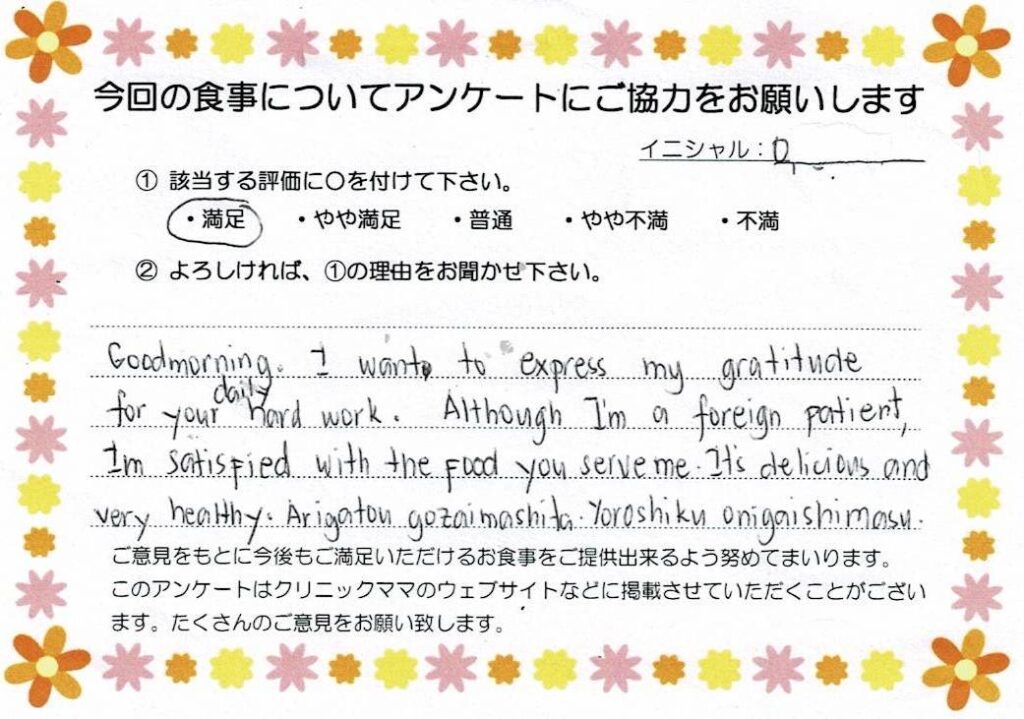 今回の食事についてアンケートにご協力をお願いします
イニシャル：D
① 該当する評価に〇を付けて下さい。
・満足 ・やや満足 ・普通 ・やや不満 ・不満
② よろしければ、①の理由をお聞かせ下さい。
Goodmorning. I want to express my gratitude
for your daily hard work. Although I'm a foreign patient,
I'm satisfied with the food you serve me. It's delicious and
very healthy. Arigatou gozaimashita. Yoroshiku onigaishimasu.
ご意見をもとに今後もご満足いただけるお食事をご提供出来るよう努めてまいります。
このアンケートはクリニックママのウェブサイトなどに掲載させていただくことがござい
ます。たくさんのご意見をお願い致します。